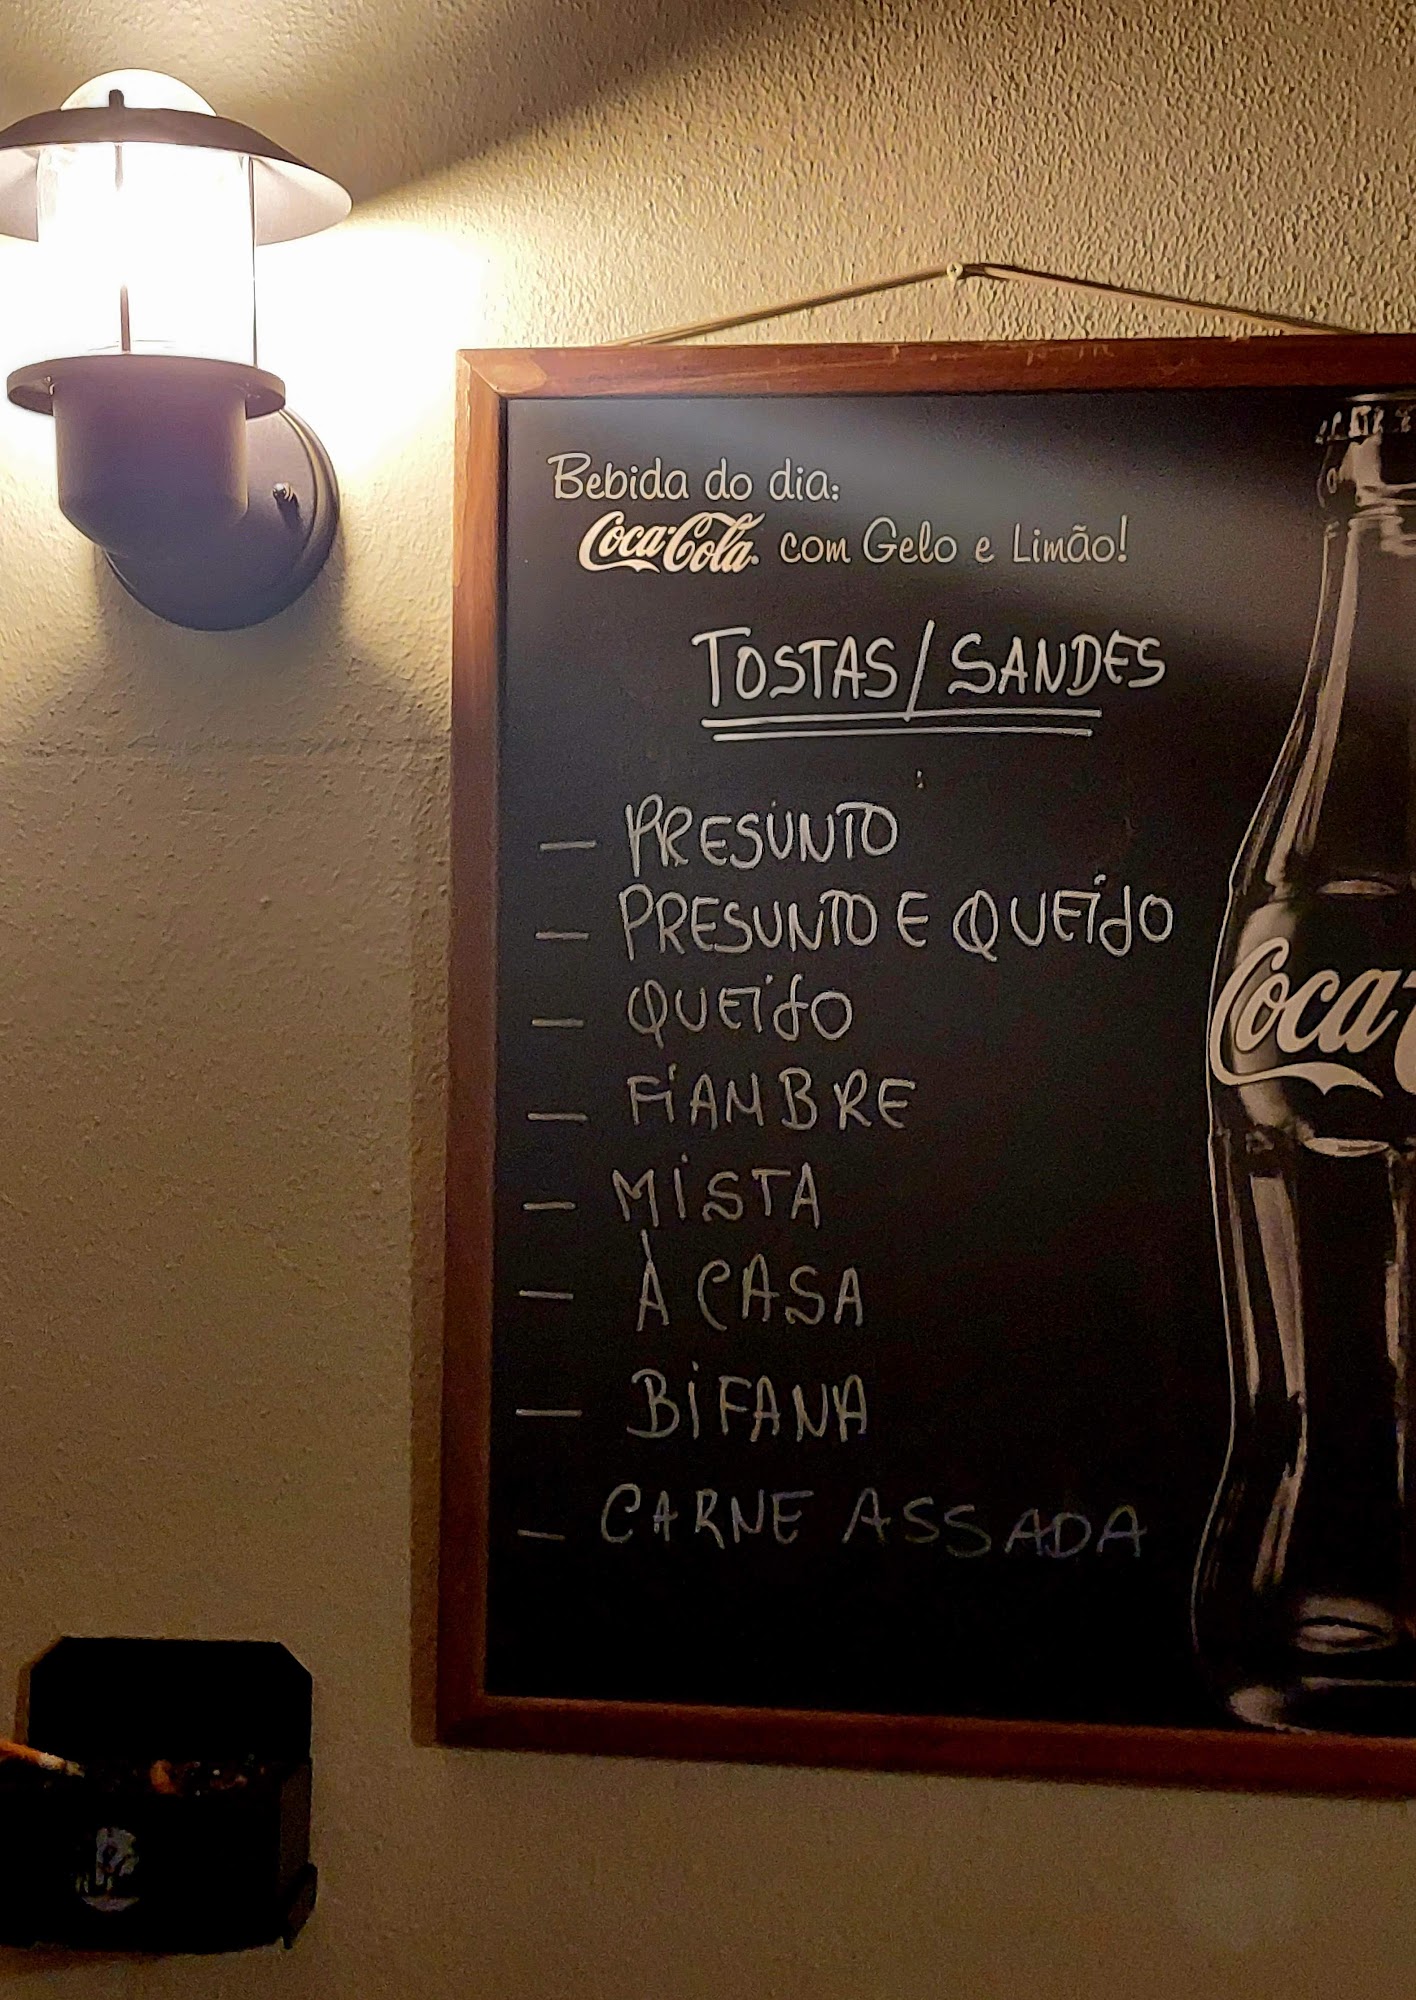 Bebida do dia:
Coca-Cola com Gelo e Limão!
TOSTAS/SANDES
— PRESUNTO
— PRESUNTO E QUEIJO
— QUEIJO
— FIAMBRE
— MISTA
— À CASA
— BIFANA
— CARNE ASSADA
Coca-C